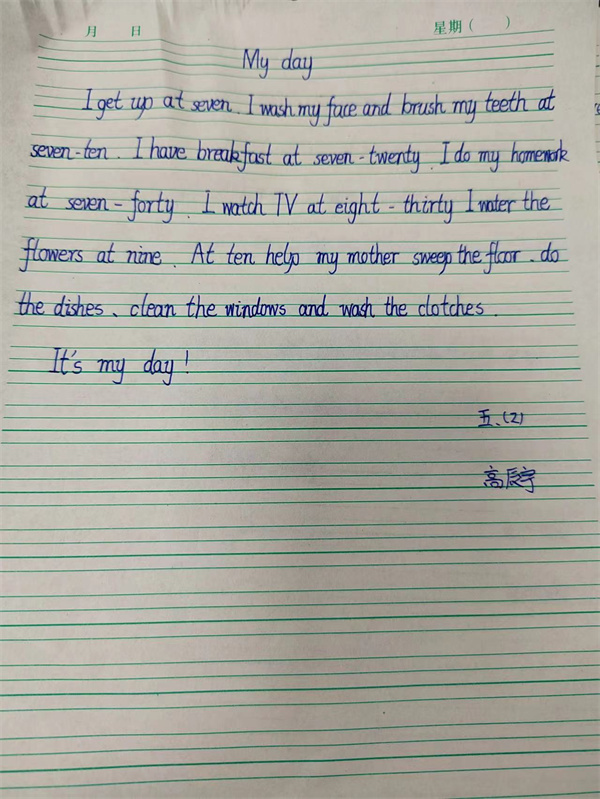 月 日 星期( )
My day
I get up at seven. I wash my face and brush my teeth at
seven-ten. I have breakfast at seven-twenty. I do my homework
at seven-forty. I watch TV at eight-thirty I water the
flowers at nine. At ten help my mother sweep the floor. do
the dishes、clean the windows and wash the clotches.
It's my day!
五、(2)
高辰宇